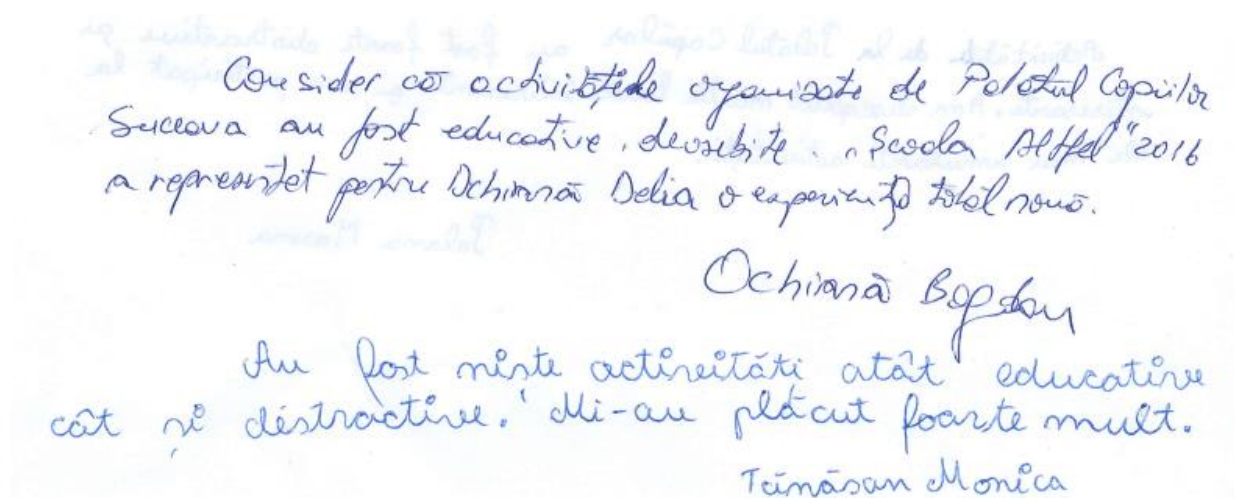 Consider că activitățile organizate de Palatul Copiilor
Suceava au fost educative, deosebite. „Școala Altfel" 2016
a reprezentat pentru Ochiană Delia o experiență total nouă.
Ochiană Bogdan
Au fost niște activități atât educative
cât și distractive. Mi-au plăcut foarte mult.
Tămășan Monica